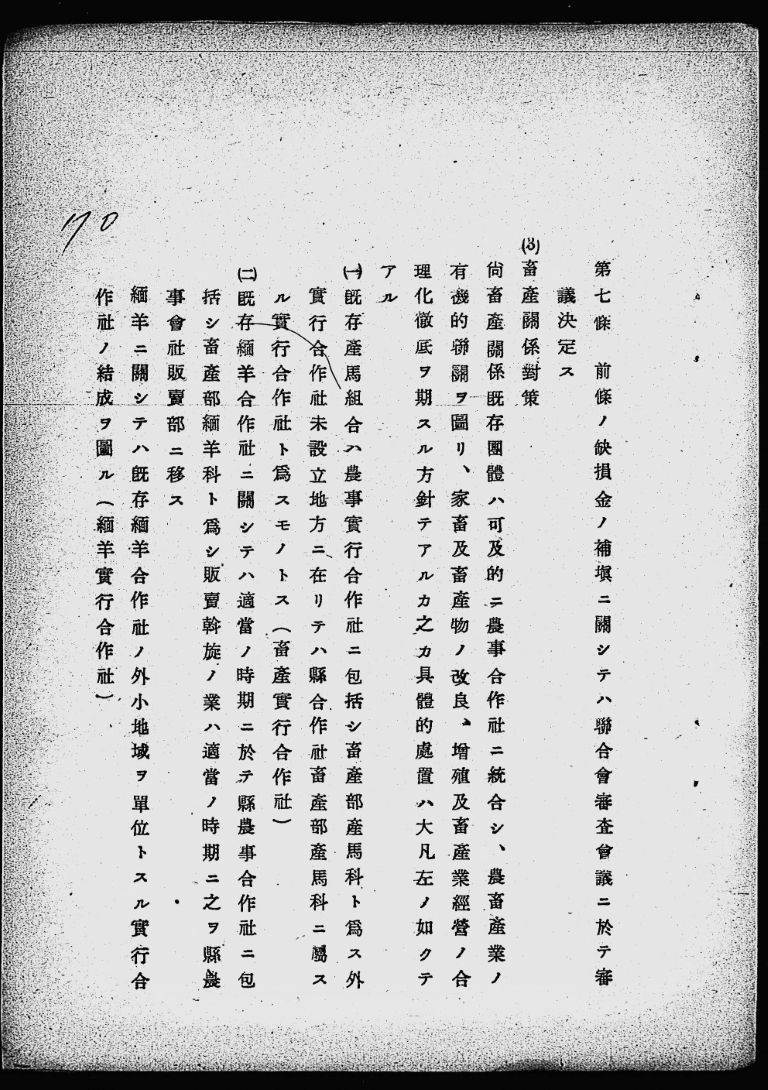 第七條　前條ノ缺損金ノ補塡ニ關シテハ聯合會審査會議ニ於テ審
議決定ス
(3)畜產關係對策
尙畜產關係既存團體ハ可及的ニ農事合作社ニ統合シ、農畜產業ノ
有機的聯關ヲ圖リ、家畜及畜產物ノ改良、增殖及畜產業經營ノ合
理化徹底ヲ期スル方針テアルカ之カ具體的處置ハ大凡左ノ如クテ
アル
(一)既存產馬組合ハ農事實行合作社ニ包括シ畜產部產馬科ト爲ス外
實行合作社未設立地方ニ在リテハ縣合作社畜產部產馬科ニ屬ス
ル實行合作社ト爲スモノトス（畜產實行合作社）
(二)既存緬羊合作社ニ關シテハ適當ノ時期ニ於テ縣農事合作社ニ包
括シ畜產部緬羊科ト爲シ販賣斡旋ノ業ハ適當ノ時期ニ之ヲ縣農
事會社販賣部ニ移ス
緬羊ニ關シテハ既存緬羊合作社ノ外小地域ヲ單位トスル實行合
作社ノ結成ヲ圖ル（緬羊實行合作社）
170